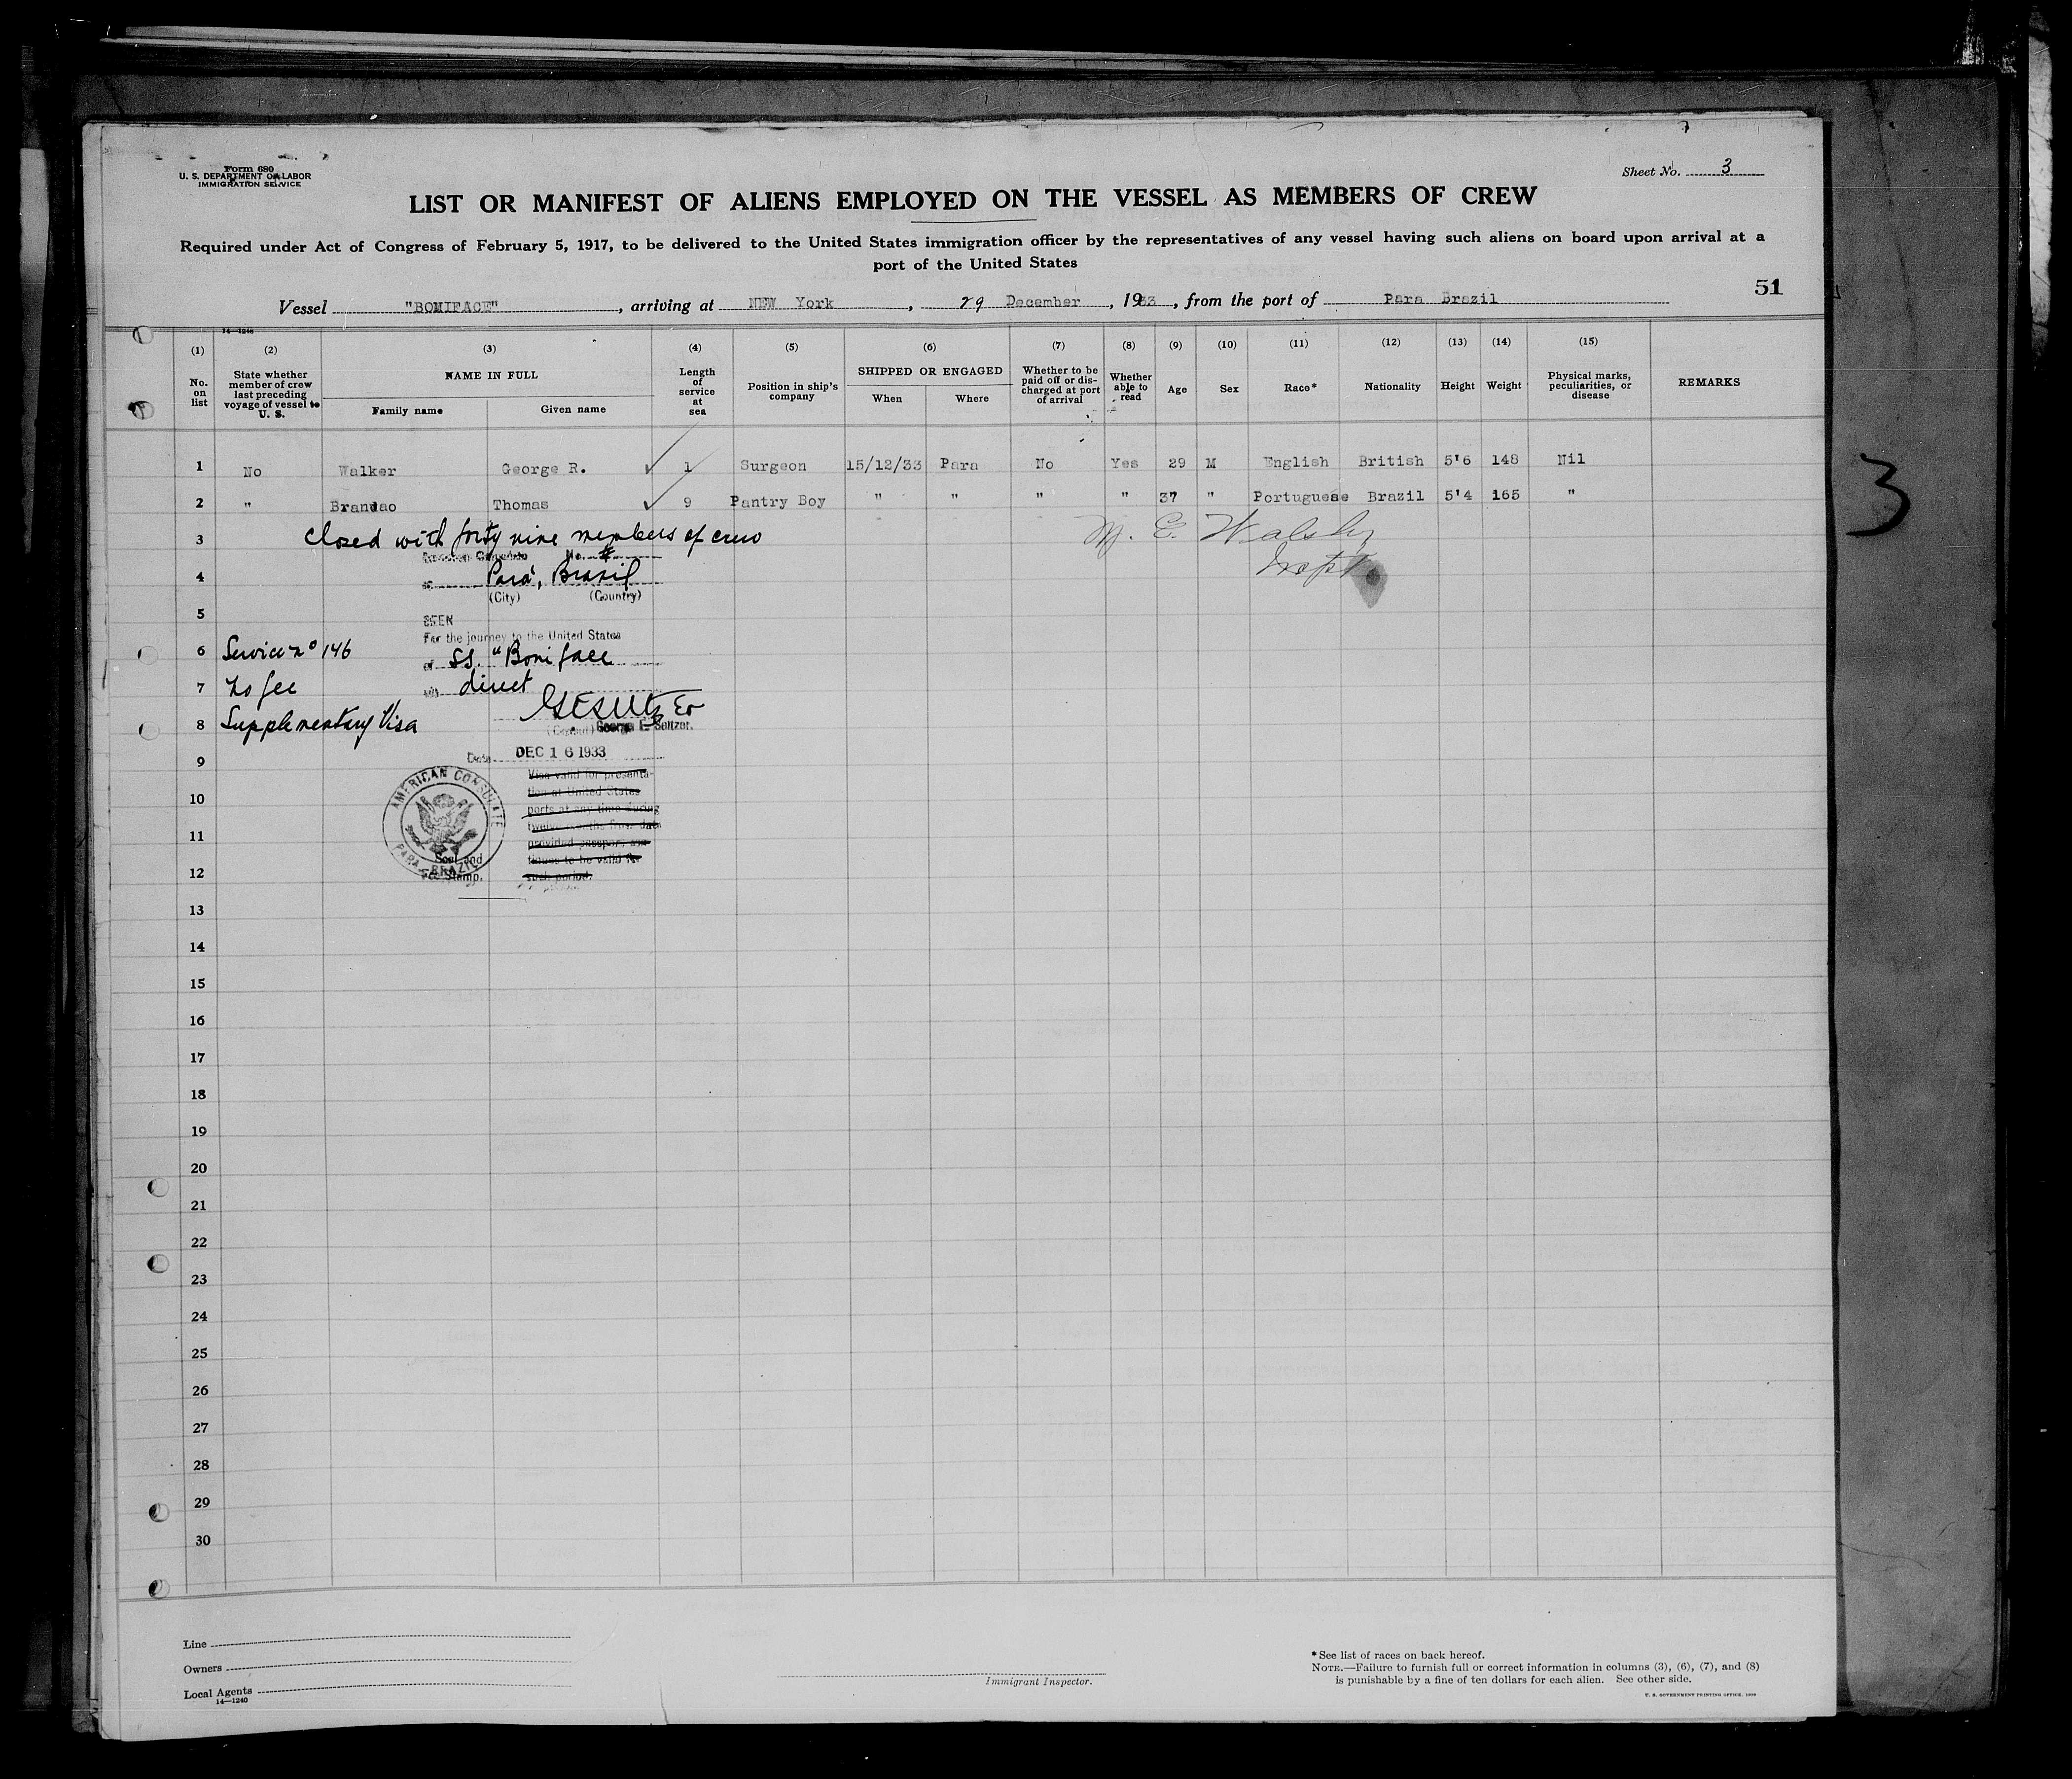 Form 680
U. S. DEPARTMENT OF LABOR
IMMIGRATION SERVICE
Sheet No. 3
LIST OR MANIFEST OF ALIENS EMPLOYED ON THE VESSEL AS MEMBERS OF CREW
Required under Act of Congress of February 5, 1917, to be delivered to the United States immigration officer by the representatives of any vessel having such aliens on board upon arrival at a
port of the United States
51
Vessel "BONIFACE", arriving at NEW York, 29 December, 1933, from the port of Para Brazil
14—1240
(1) (2) (3) (4) (5) (6) (7) (8) (9) (10) (11) (12) (13) (14) (15)
No. on list
State whether member of crew last preceding voyage of vessel to U. S.
NAME IN FULL
Family name
Given name
Length of service at sea
Position in ship's company
SHIPPED OR ENGAGED
When
Where
Whether to be paid off or discharged at port of arrival
Whether able to read
Age
Sex
Race*
Nationality
Height
Weight
Physical marks, peculiarities, or disease
REMARKS
1 No Walker George R. ✓ 1 Surgeon 15/12/33 Para No Yes 29 M English British 5'6 148 Nil
2 " Brandao Thomas ✓ 9 Pantry Boy " " " " 37 " Portuguese Brazil 5'4 165 "
3 Closed with forty nine members of crew M. E. Walsh
No.
Inspt
4 Pará, Brazil
(City) (Country)
5 SEEN
For the journey to the United States
6 Service no 146 of SS. "Boniface
7 No fee via direct
8 Supplementary Visa
(Consul) George E. Seltzer.
9 Date DEC 16 1933
Visa valid for presenta-
10 tion at United States
ports at any time during
11 twelve months from date
provided passport con-
tinues to be valid for
12 such period.
AMERICAN CONSULATE
PARA - BRAZIL
Seal and
Fee Stamp.
13
14
15
16
17
18
19
20
21
22
23
24
25
26
27
28
29
30
3
Line
Owners
Local Agents
14—1240
Immigrant Inspector.
*See list of races on back hereof.
NOTE.—Failure to furnish full or correct information in columns (3), (6), (7), and (8)
is punishable by a fine of ten dollars for each alien. See other side.
U. S. GOVERNMENT PRINTING OFFICE